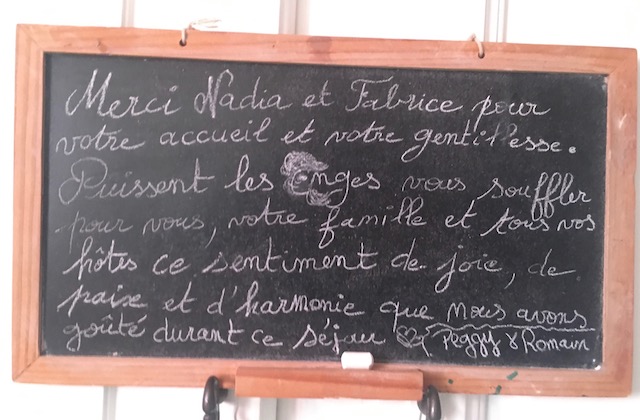 Merci Nadia et Fabrice pour
votre accueil et votre gentillesse.
Puissent les Anges vous souffler
pour vous, votre famille et tous vos
hôtes ce sentiment de joie, de
paix et d'harmonie que nous avons
goûté durant ce séjour
Peggy & Romain